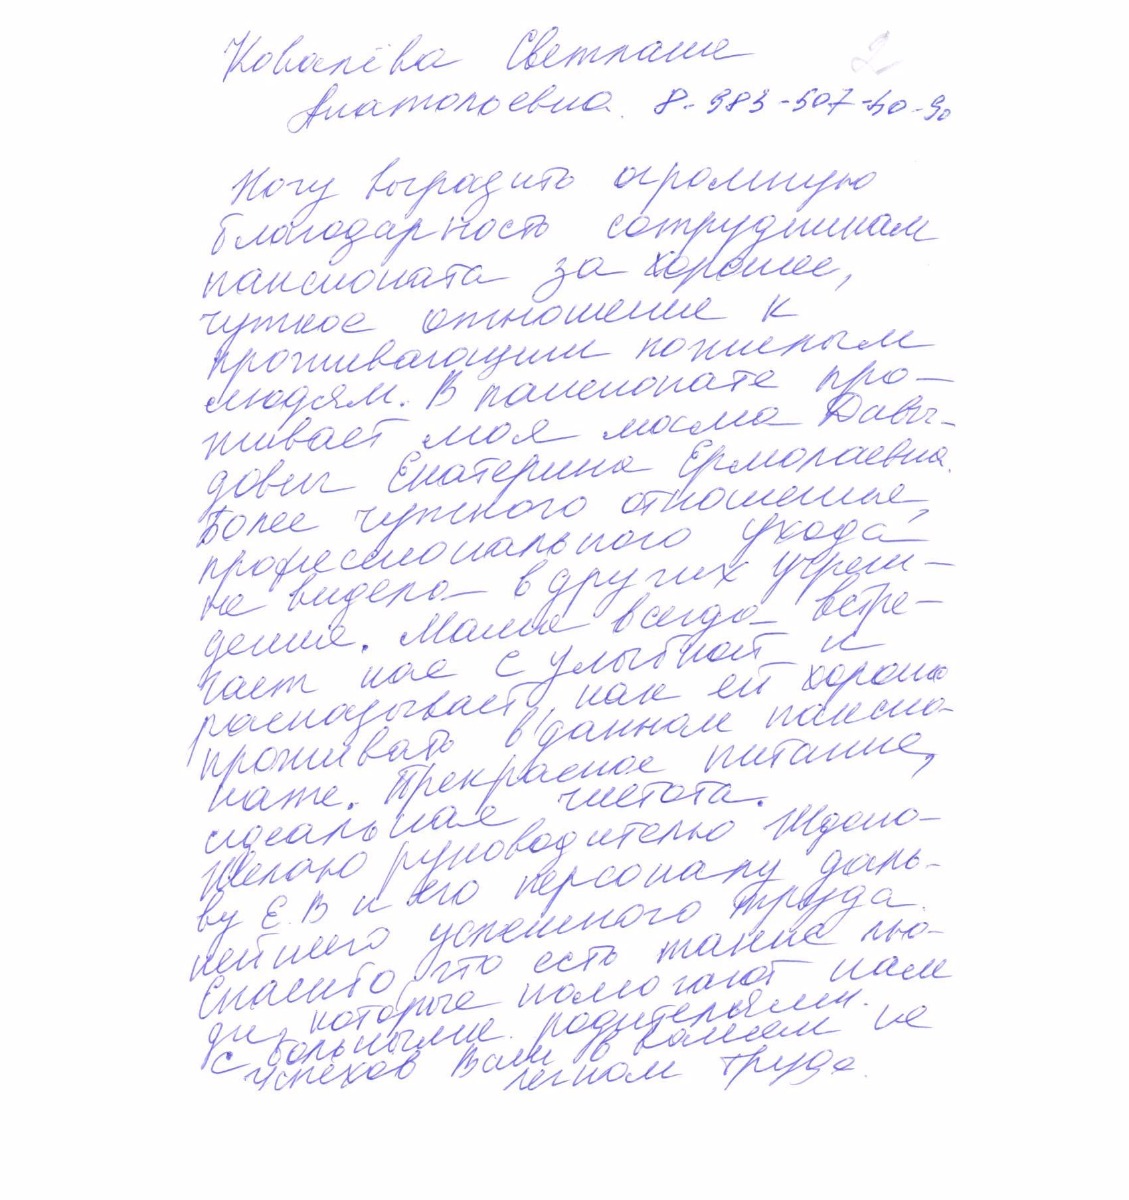 Ковалёва Светлана
Анатольевна. 8-983-507-40-90
Хочу выразить огромную
благодарность сотрудникам
пансионата за хорошее,
чуткое отношение к
проживающим пожилым
людям. В пансионате про-
живает моя мама Давы-
довы Екатерина Ермолаевна.
Более чуткого отношение,
профессионального ухода
не видела в других учреж-
дения. Мама всегда встре-
чает нас с улыбкой и
рассказывает, как ей хорошо
проживать в данном пансио-
нате. Прекрасное питание,
идеальная чистота.
Желаю руководителю Ждано-
ву Е.В и его персоналу даль-
нейшего успешного труда.
Спасибо, что есть такие лю-
ди, которые помогают нам
с больными родителями.
Успехов Вам в вашем не
легком труде.